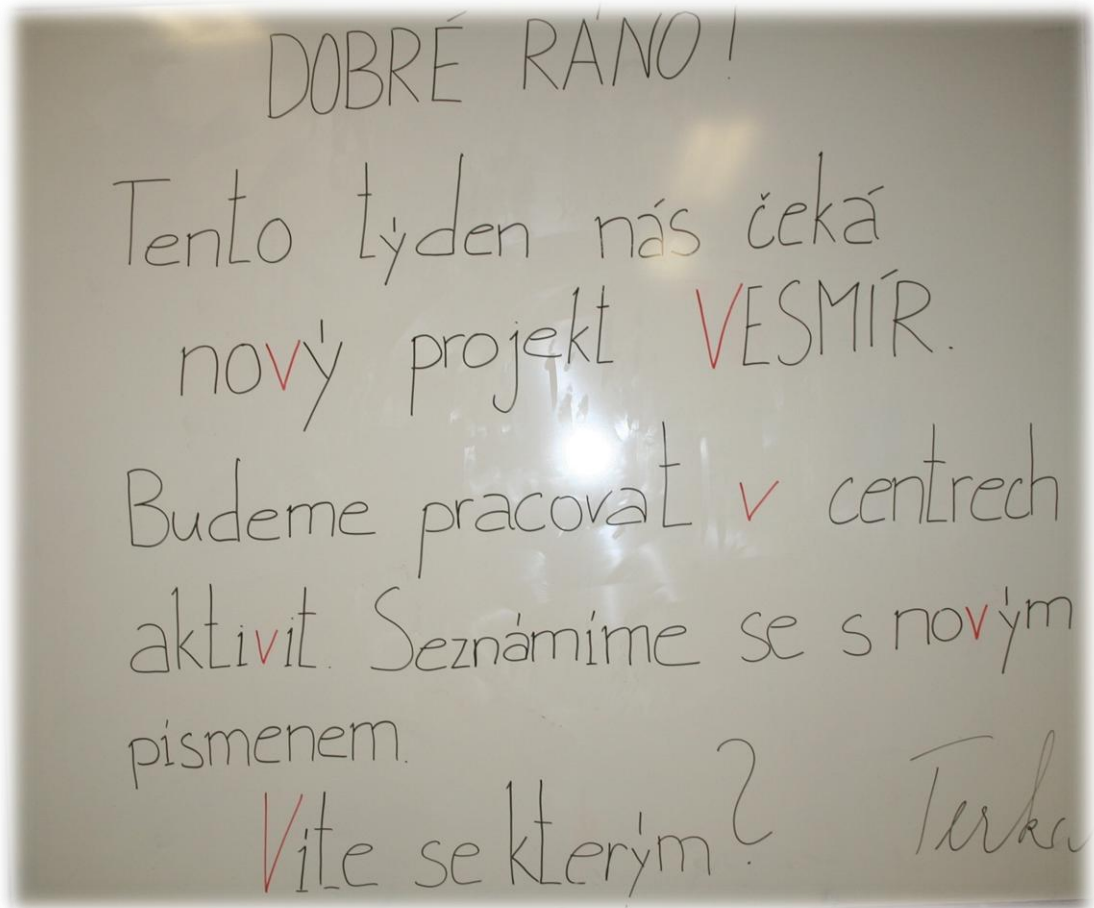 DOBRÉ RÁNO!
Tento týden nás čeká
nový projekt VESMÍR.
Budeme pracovat v centrech
aktivit. Seznámíme se s novým
písmenem.
Víte se kterým?
Terka